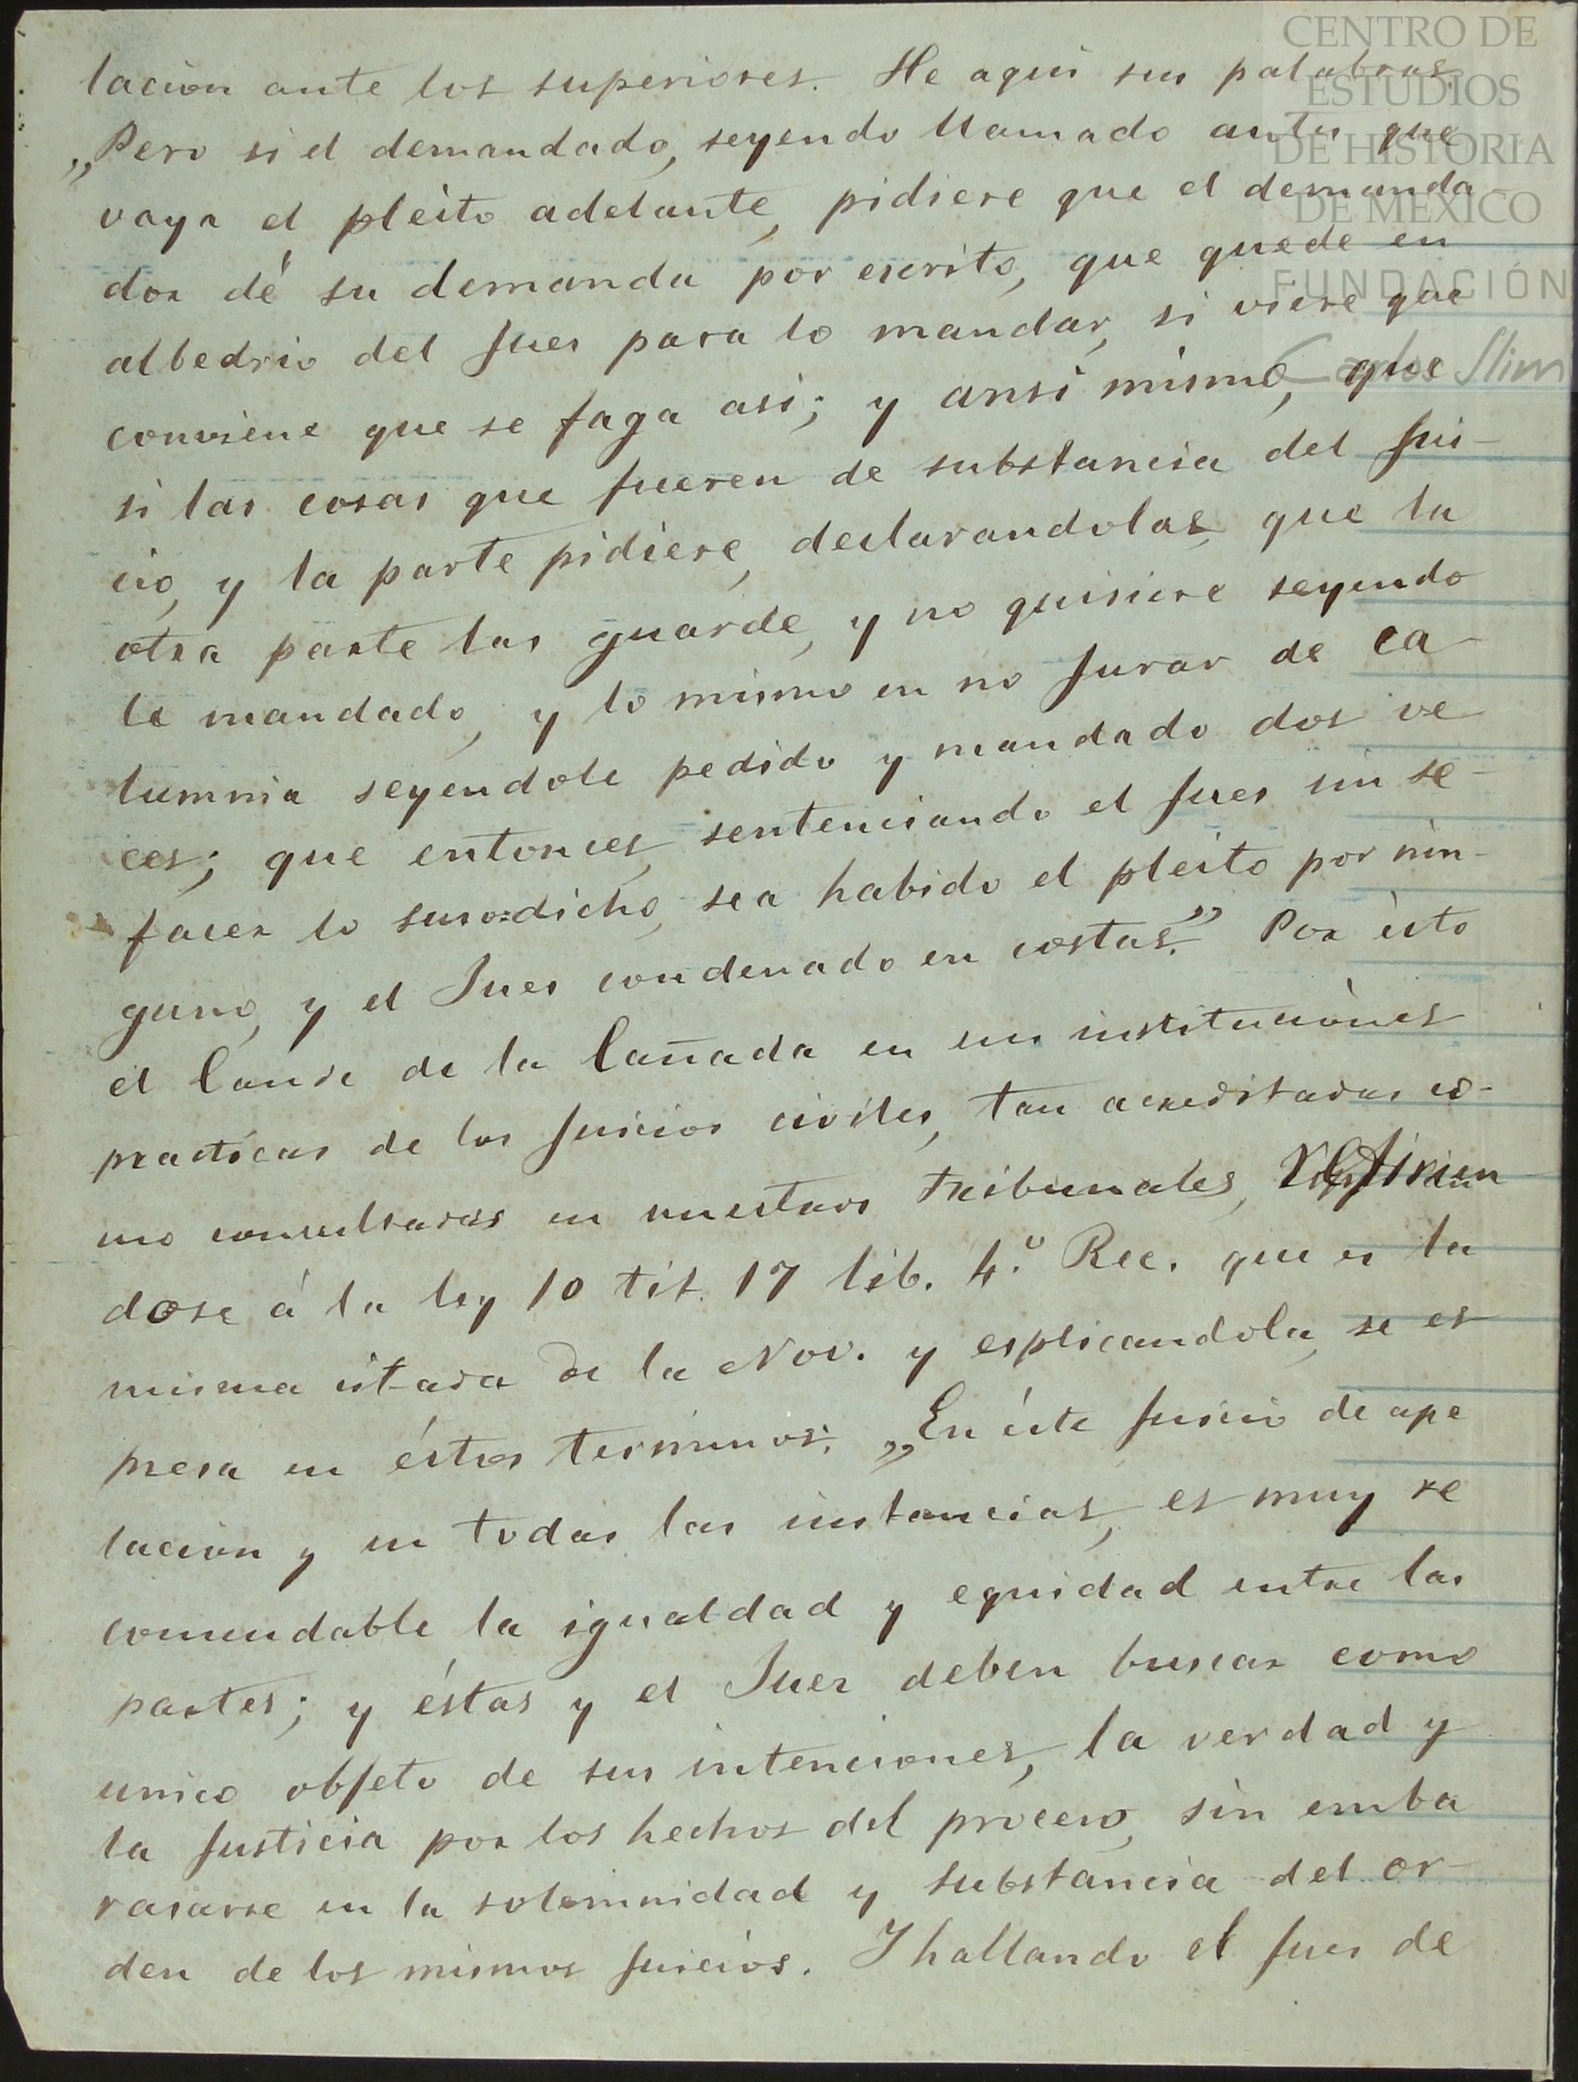 lacion ante los superiores. He aqui sus palabras.
„Pero si el demandado, seyendo llamado antes que
vaya el pleito adelante, pidiere que el demanda-
dor dé su demanda por escrito, que quede en
albedrio del Juez para lo mandar, si viere que
conviene que se faga asi; y ansi mismo, que
si las cosas que fueren de substancia del jui-
cio, y la parte pidiere, declarandolas, que la
otra parte las guarde, y no quisiere seyendo
le mandado, y lo mismo en no jurar de ca-
lumnia seyendole pedido y mandado dos ve
ces; que entonces, sentenciando el juez sin se-
facer lo susodicho, sea habido el pleito por nin-
guno, y el Juez condenado en costas.” Por ésto
el Conde de la Cañada en sus instituciónes
practicas de los juicios civiles, tan acreditadas co-
mo consultadas en nuestros tribunales, refirien
dose á la ley 10 tit. 17 lib. 4.º Rec. que es la
misma citada de la Nov. y esplicandola, se es
presa en éstos terminos: „En éste juicio de ape
lacion y en todas las instancias, es muy re
comendable la igualdad y equidad entre las
partes; y éstas y el Juez deben buscar como
unico objeto de sus intenciones, la verdad y
la justicia por los hechos del proceso, sin emba
rasarse en la solemnidad y substancia del or-
den de los mismos juicios. Y hallando el juez de
CENTRO DE
ESTUDIOS
DE HISTORIA
DE MEXICO
FUNDACIÓN
Carlos Slim